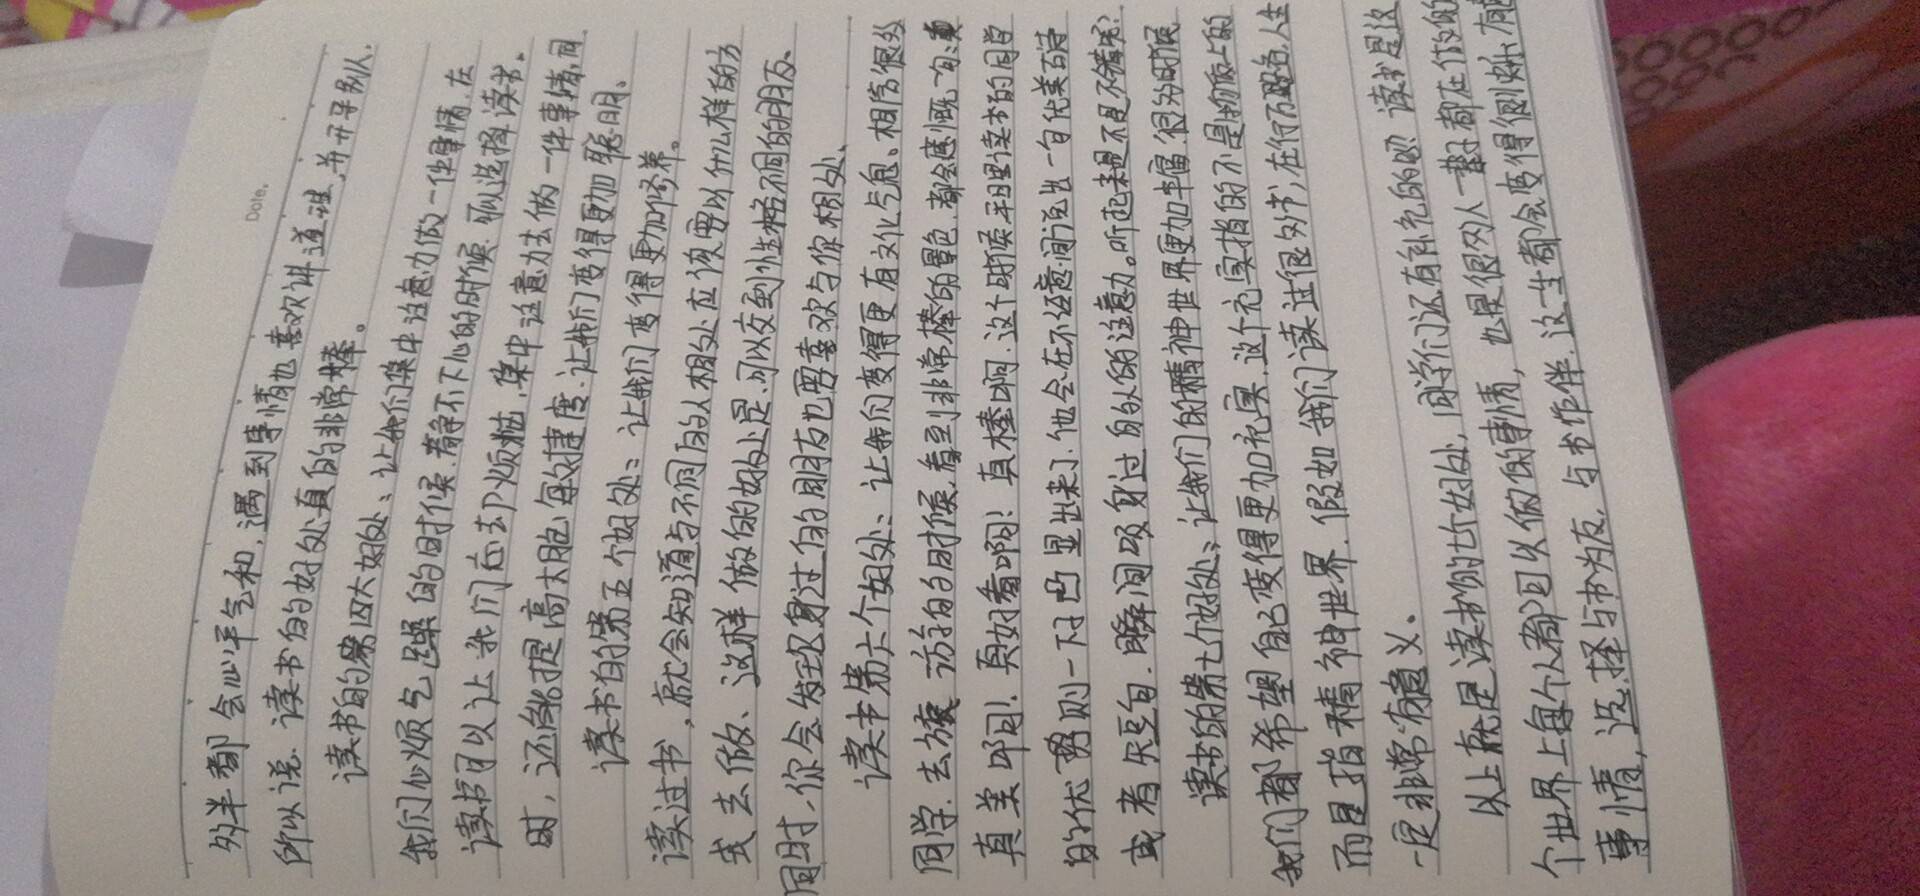 Date.
多半都会心平气和,遇到事情也喜欢讲道理,并开导别人,
所以说读书的好处真的非常棒。
读书的第四大好处:让我们集中注意力做一件事情,在
我们心烦气躁的时候,静不下心的时候,可以选择读书。
读书可以让我们忘却烦恼,集中注意力去做一件事情,同
时,还能提高大脑每秒速度,让我们变得更加聪明。
读书的第五个好处:让我们变得更加修养。
读过书,就会知道与不同的人相处应该要以什么样的方
式去做、这样做的好处是,可以交到性格不同的朋友、
同时,你会发现身边的朋友也更喜欢与你相处、
读书第六个好处:让我们变得更有文化气息、相信很多
同学去旅游的时候,看到非常棒的景色,都会感慨一句:真
真美啊!真好看啊!真棒啊,这个时候平日里读书的同学
的优势则一下凸显出来了,他会在不经意间说出一句优美的诗
或者短句,瞬间吸引身边的人的注意力。听起来是不是不错呢?
读书的第七个好处:让我们的精神世界更加丰富,很多时候
我们都希望自己变得更加充实,这个充实指的不是物质上的
而是指精神世界,假如我们读过很多书,在行万路,人生
一定非常有意义。
以上就是读书的七大好处,同学们还有补充的吗?读书是这
个世界上每个人都可以做的事情,也是很多人一辈子都在做的
事情,选择与书为友,与书作伴,这一生都会变得很奇妙、有趣